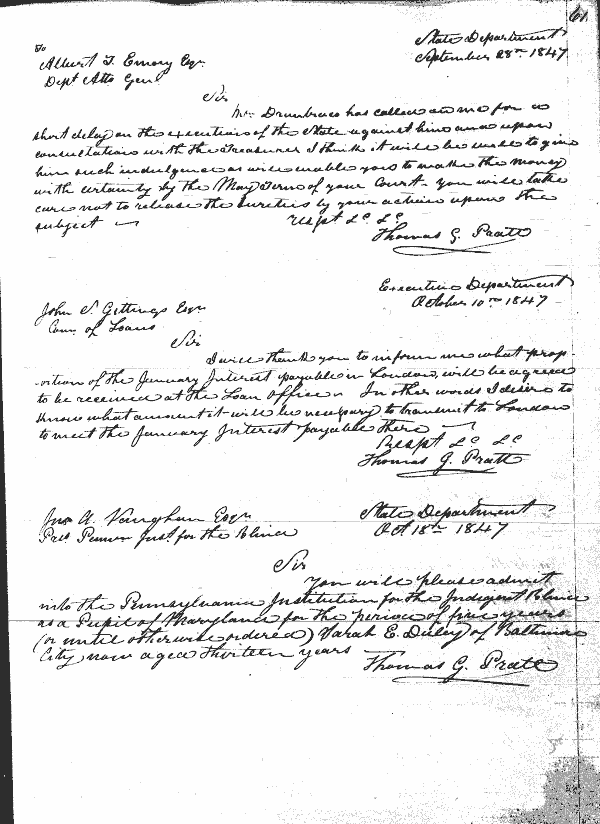 61
To
State Department
Albert T. Emory Esqr
September 28th 1847
Dept Atto Genl
Sir
Mr has called on me for a
short delay on the execution of the State against him and upon
consultation with the Treasurer I think it will be well to give
him such indulgence as will enable you to make the money
with certainty by the May Term of your Court - you will take
care not to release the sureties by your action upon the
subject
Respt &c &c
Thomas G. Pratt
Executive Department
October 10th 1847
John S. Gittings Esqr
Com. of Loans
Sir
I will thank you to inform me what prop-
ortion of the January Interest payable in London, will be agreed
to be received at the Loan office - In other words I desire to
know what amount it will be necessary to transmit to London
to meet the January Interest payable there
Respt &c &c
Thomas G. Pratt
Jno A. Vaughan Esqr
State Department
Prs Penn Inst for the Blind
Oct 18th 1847
Sir
You will please admit
into the Pennsylvania Institution for the Indigent Blind
as a Pupil of Maryland for the period of five years
(or until otherwise ordered) Sarah E. of Baltimore
City now aged thirteen years
Thomas G. Pratt